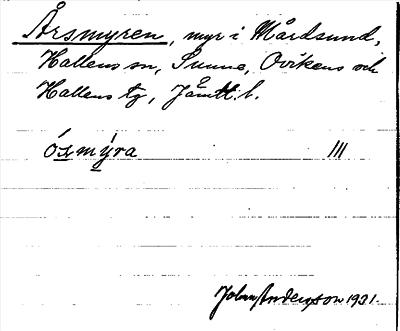 Årsmyren, myr i Mårdsund,
Hallens sn, Sunne, Ovikens och
Hallens tg, Jämtl. l.
ósmýra III
Johan Anderson 1931.